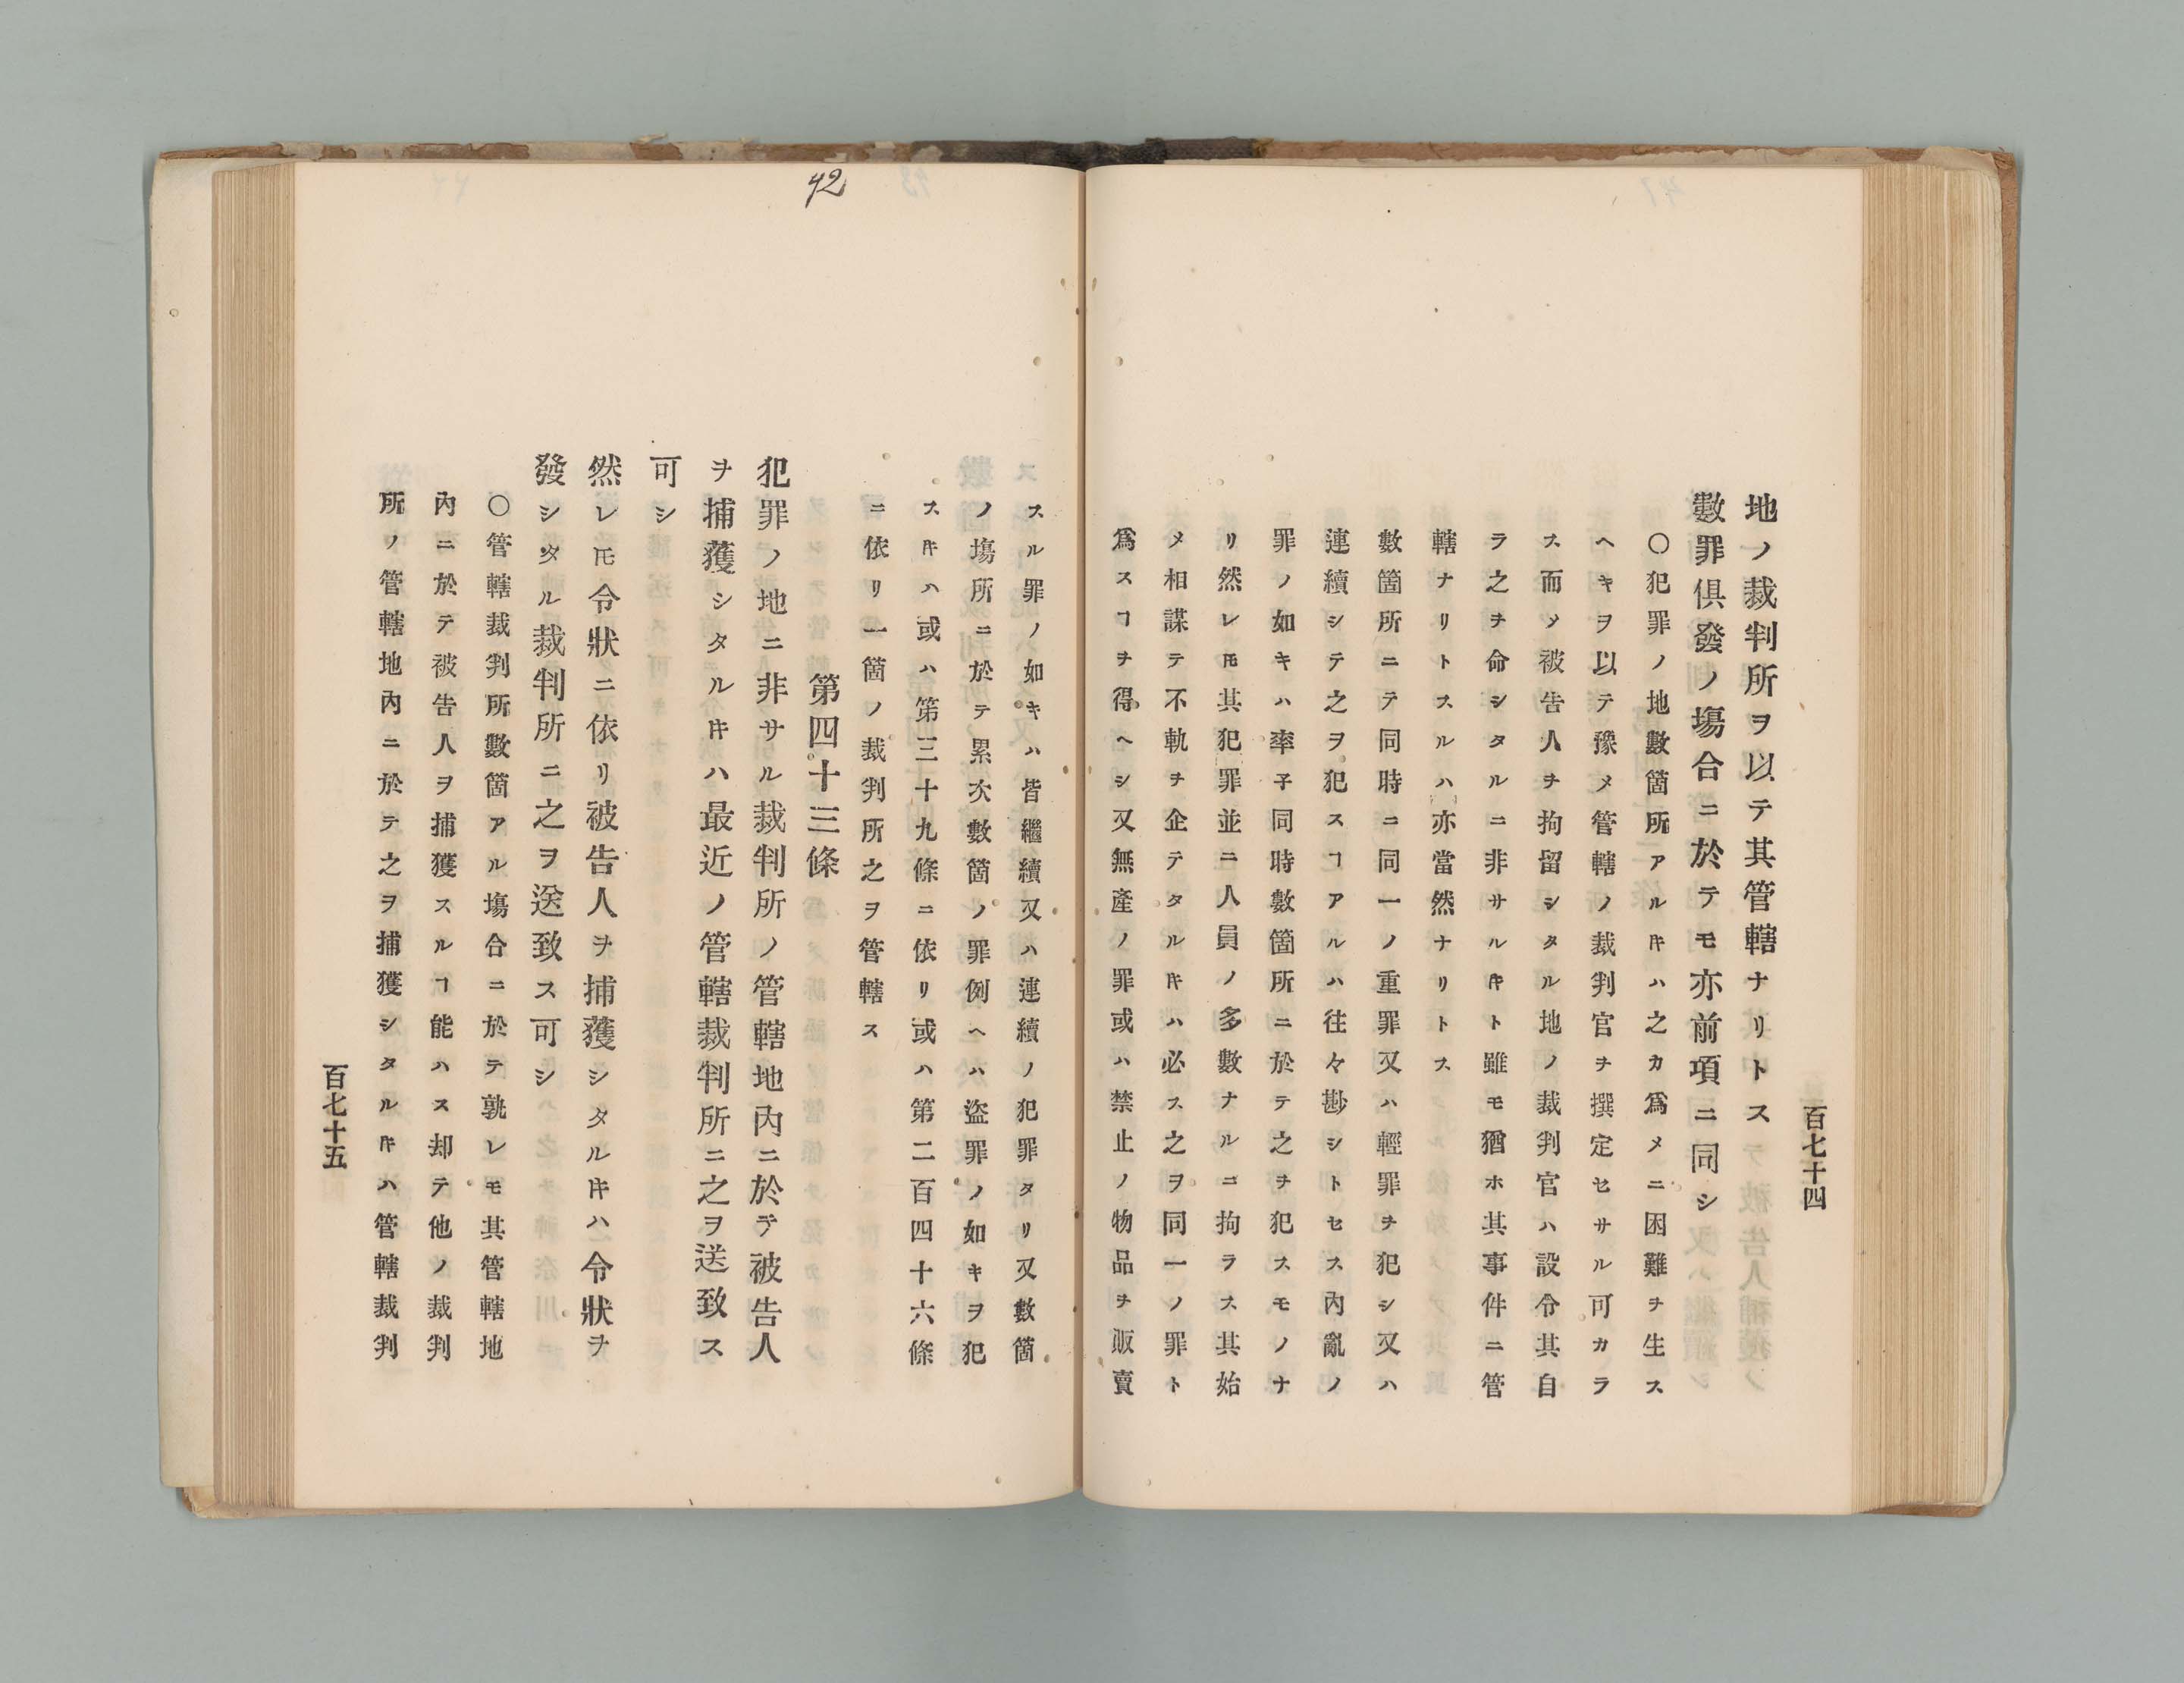 百七十四
地ノ裁判所ヲ以テ其管轄ナリトス
數罪俱發ノ塲合ニ於テモ亦前項ニ同シ
〇犯罪ノ地數箇所アルキハ之カ爲メニ困難ヲ生ス
ヘキヲ以テ豫メ管轄ノ裁判官ヲ撰定セサル可カラ
ス而メ被告人ヲ拘留シタル地ノ裁判官ハ設令其自
ラ之ヲ命シタルニ非サルキト雖モ猶ホ其事件ニ管
轄ナリトスルハ亦當然ナリトス
數箇所ニテ同時ニ同一ノ重罪又ハ輕罪ヲ犯シ又ハ
連續シテ之ヲ犯スヿアルハ往々尠シトセス內亂ノ
罪ノ如キハ率子同時數箇所ニ於テ之ヲ犯スモノナ
リ然レ𪜈其犯罪並ニ人員ノ多數ナルニ拘ラス其始
メ相謀テ不軌ヲ企テタルキハ必ス之ヲ同一ノ罪ト
爲スヿヲ得ヘシ又無產ノ罪或ハ禁止ノ物品ヲ販賣
42
スル罪ノ如キハ皆繼續又ハ連續ノ犯罪タリ又數箇
ノ塲所ニ於テ累次數箇ノ罪例ヘハ盜罪ノ如キヲ犯
スキハ或ハ第三十九條ニ依リ或ハ第二百四十六條
ニ依リ一箇ノ裁判所之ヲ管轄ス
第四十三條
犯罪ノ地ニ非サル裁判所ノ管轄地內ニ於テ被告人
ヲ捕獲シタルキハ最近ノ管轄裁判所ニ之ヲ送致ス
可シ
然レ𪜈令狀ニ依リ被告人ヲ捕獲シタルキハ令狀ヲ
發シタル裁判所ニ之ヲ送致ス可シ
〇管轄裁判所數箇アル塲合ニ於テ孰レモ其管轄地
內ニ於テ被告人ヲ捕獲スルヿ能ハス却テ他ノ裁判
所ノ管轄地內ニ於テ之ヲ捕獲シタルキハ管轄裁判
百七十五